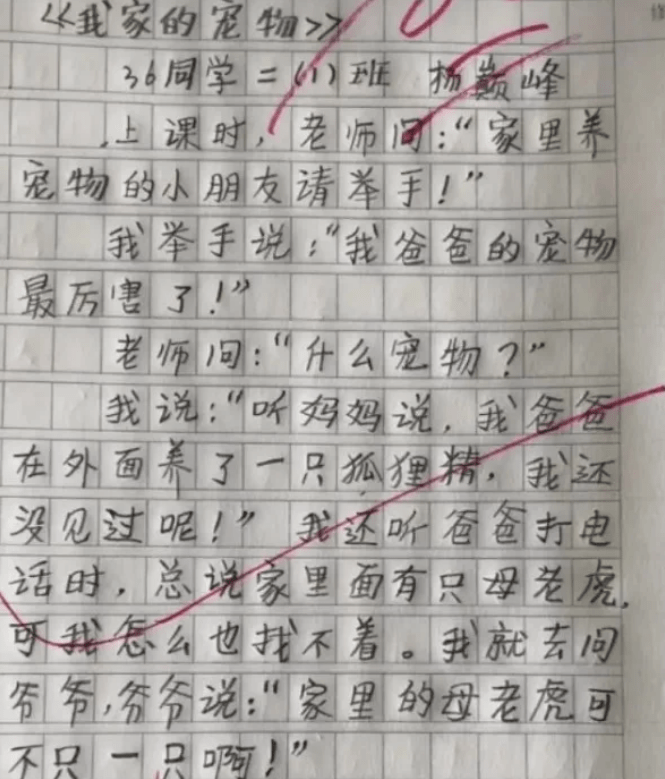 《我家的宠物》
36同学二(1)班 杨巅峰
上课时,老师问:“家里养
宠物的小朋友请举手!”
我举手说:“我爸爸的宠物
最厉害了!”
老师问:“什么宠物?”
我说:“听妈妈说,我爸爸
在外面养了一只狐狸精,我还
没见过呢!”我还听爸爸打电
话时,总说家里面有只母老虎,
可我怎么也找不着。我就去问
爷爷,爷爷说:“家里的母老虎可
不只一只啊!”